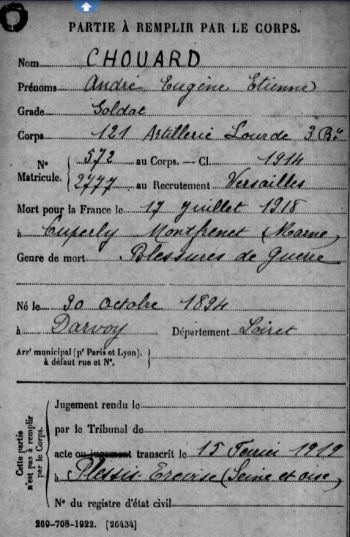 PARTIE À REMPLIR PAR LE CORPS.
Nom CHOUARD
Prénoms André Eugène Etienne
Grade Soldat
Corps 121 Artillerie Lourde 3 Bie
N° Matricule. 572 au Corps. — Cl. 1914
2777 au Recrutement Versailles
Mort pour la France le 17 juillet 1918
à Cuperly Montfrenet (Marne)
Genre de mort Blessures de Guerre
Né le 30 octobre 1894
à Darvoy Département Loiret
Arrt municipal (pr Paris et Lyon),
à défaut rue et N°.
Cette partie n'est pas à remplir par le Corps.
Jugement rendu le
par le Tribunal de
acte ou jugement transcrit le 15 Fevrier 1919
à Plessis (Seine et oise)
N° du registre d'état civil
269-708-1922. [26434]